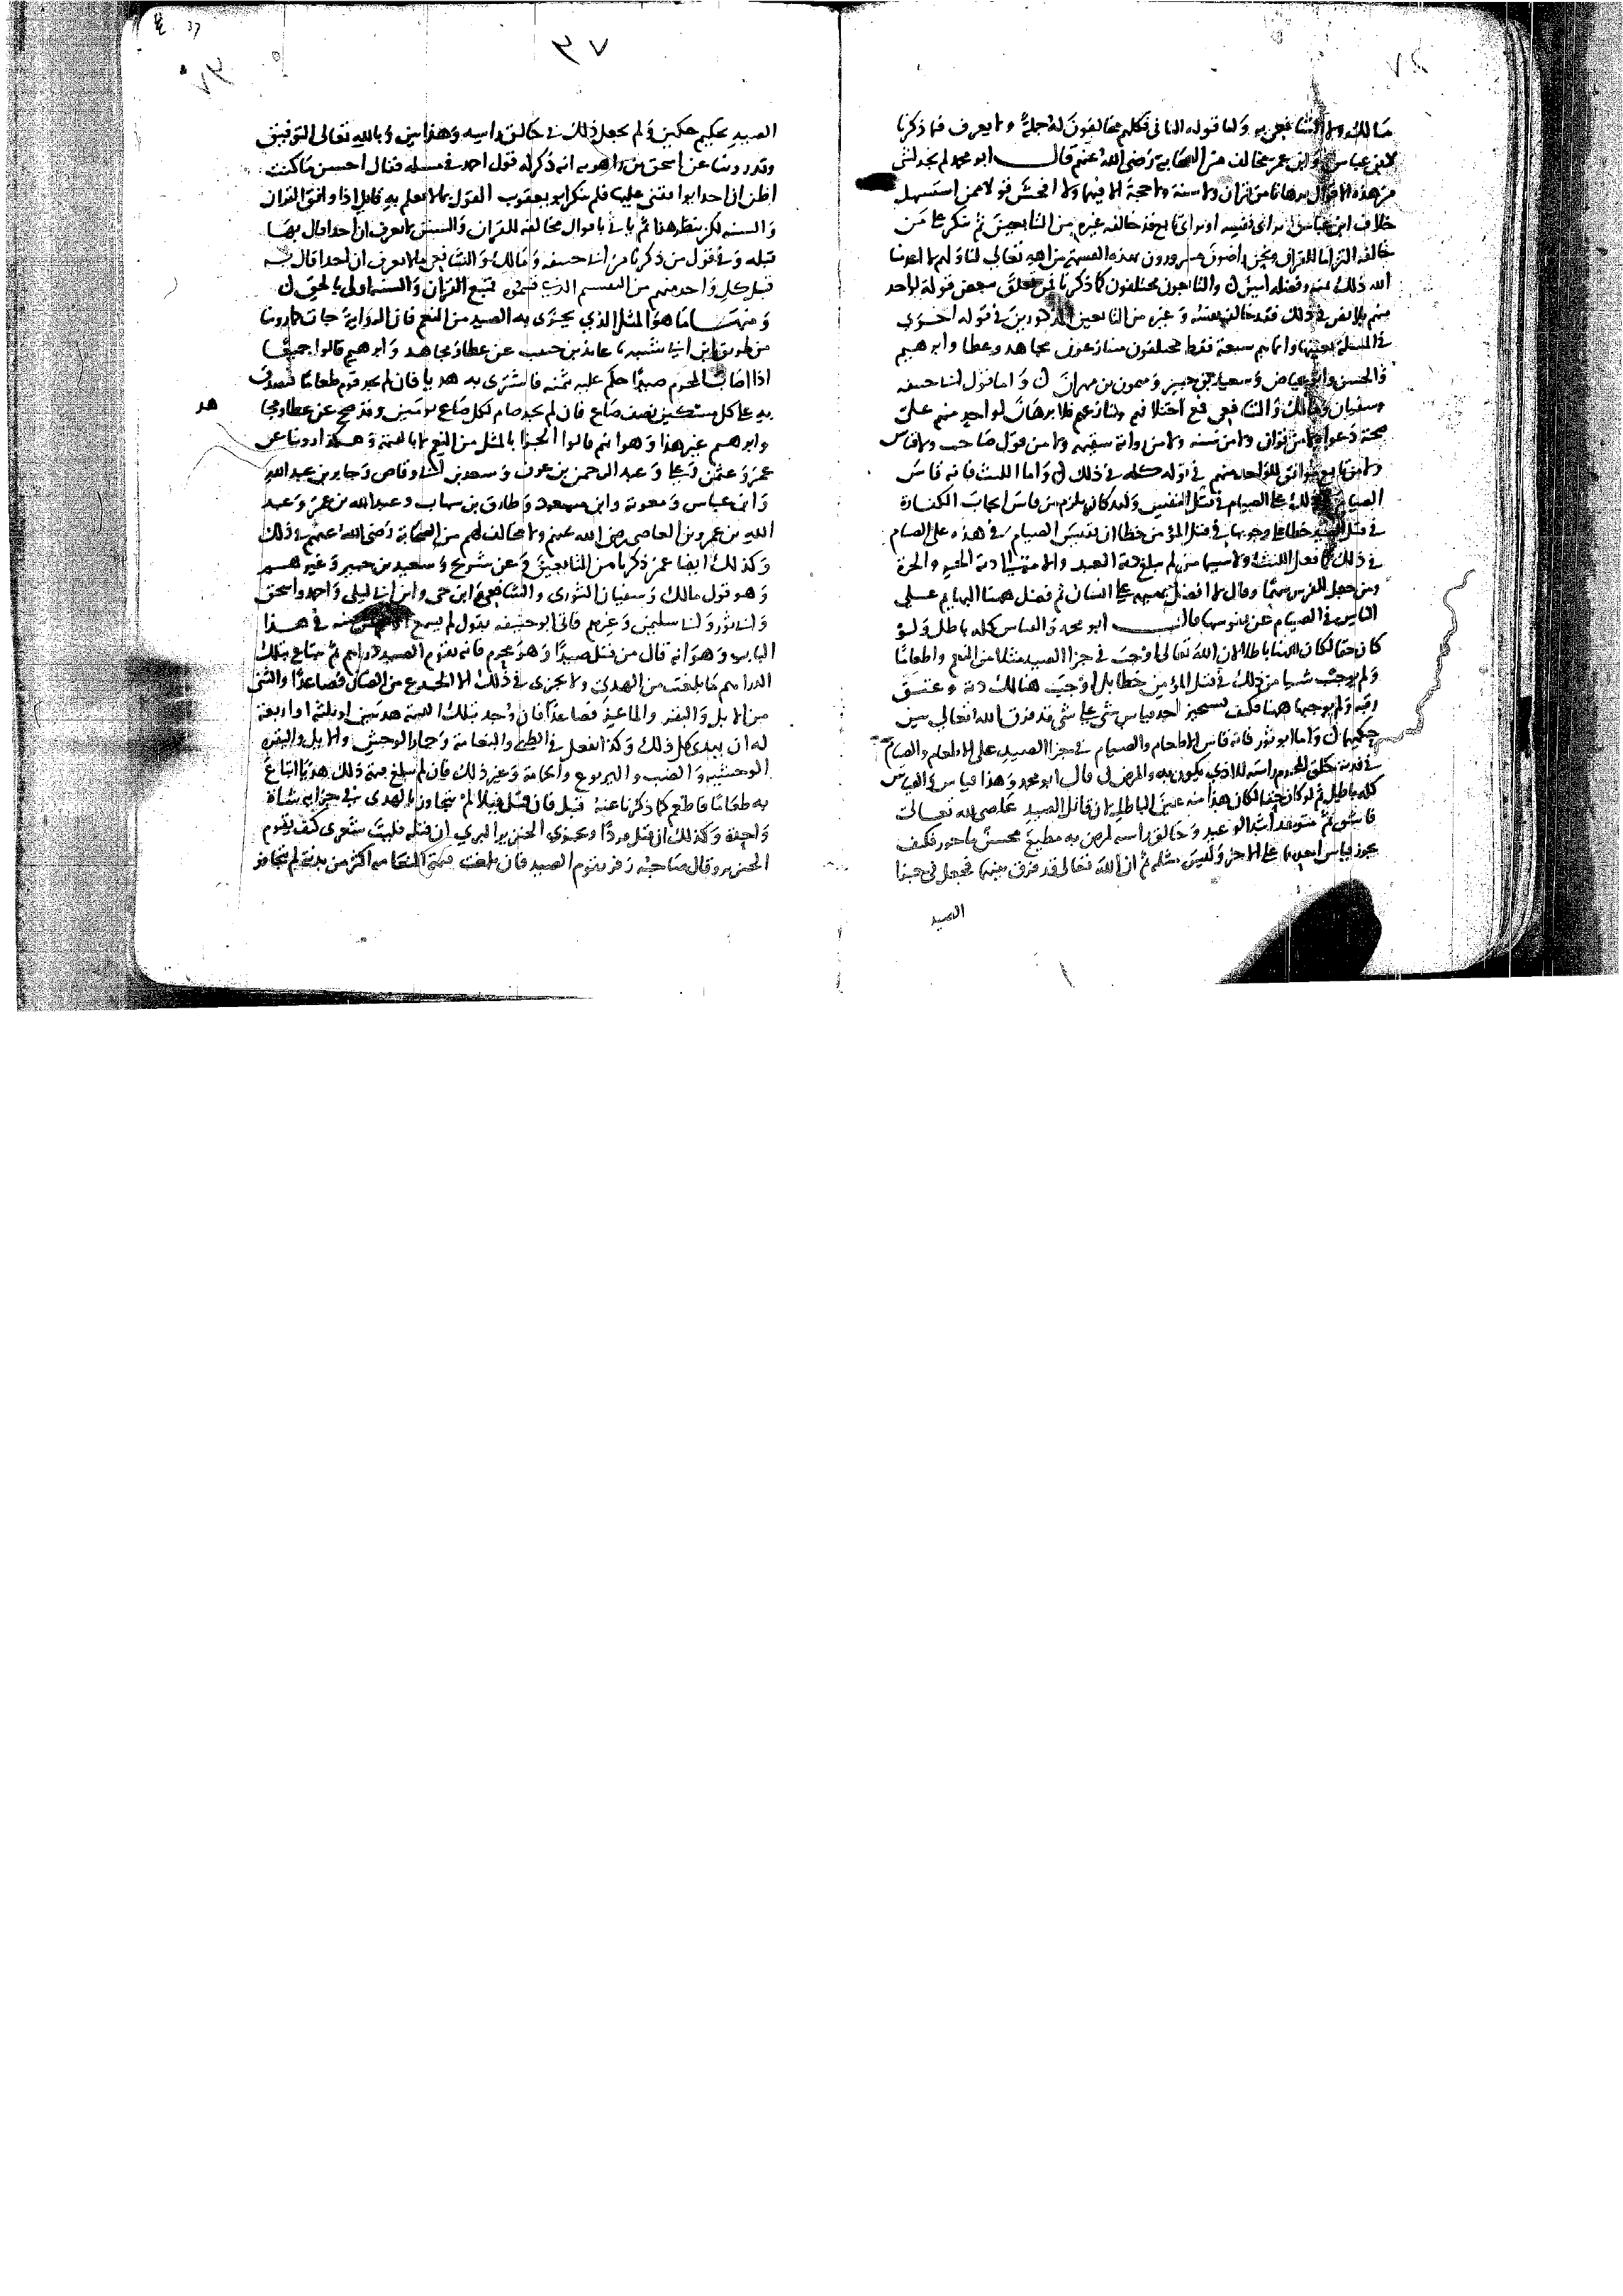 ٣٧
مالك ولا الشافعي به ولما قوله الثاني فكلهم مخالفون له جملة ولا يعرف فيما ذكرنا
لابن عباس وابن عمر مخالف من الصحابة رضي الله عنهم قال ابو محمد لم نجد لشي
من هذه الاقوال برهانا من قران ولا سنة ولا حجة الا فيهما ولا افحش قولا ممن استسهل
خلاف ابن عباس برأي نفسه او براي تابع قد خالفه غيره من التابعين ثم ينكر على من
خالفه التزاما للقران ونحن راضون مسرورون بهذه القسمة من الله تعالى لنا ولهم لا اعدمنا
الله ذلك بمنه وفضله امين والتابعون مختلفون كما ذكرنا فمن تعلق ببعض قوله لواحد
منهم بلا نص في ذلك فقد خالفه بعينه وغيره من التابعين المذكورين في قوله اخرى
في المسئلة بعينها وانما هم سبعة فقط مختلفون متنازعون مجاهد وعطا وابرهيم
والحسن وابو عياض وسعيد بن جبير وميمون بن مهران واما قول ابي حنيفه
وسفيان ومالك والشافعي فمع اختلافهم وتنازعهم فلا برهان لواحد منهم على
صحة دعواه لا من قران ولا من سنه ولا من رواية سقيمه ولا من قول صاحب ولا قياس
ولا من تابع موافق للواحد منهم في قوله كله في ذلك واما الليث فانه قاس
الصيام في ذلك على الصيام في قتل النفس ولقد كان يلزم من قاس ايجاب الكفارة
في قتل الصيد خطا على وجوبها في قتل المؤمن خطا ان يقيس الصيام في هذه على الصيام
في ذلك كما فعل الليث ولا سيما من لم يبلغ بقيمة العبد والامة الا دية الحر والحرة
ومن جعل للفرس سهما وقال لا افضل بهيمه على انسان ثم فضل ههنا البهايم على
الناس في الصيام عن نفوسها قال ابو محمد والقياس كله باطل ولو
كان حقا لكان ههنا باطلا لان الله تعالى اوجب في جزا الصيد مثلا من النعم واطعاما
ولم يوجب شيا من ذلك في قتل المؤمن خطا بل اوجب هنالك دية وعتق
رقبه ولم يوجبها ههنا فكيف يستجيز احد قياس شي على شي قد فرق الله تعالى بين
حكميهما واما ابو ثور فانه قاس الاطعام والصيام في جزا الصيد على الاطعام والصيام
في فدية حلق المحرم راسه للاذى يكون به والمرض قال ابو محمد وهذا قياس والقياس
كله باطل ثم لو كان حقا لكان هذا منه عين الباطل لان قاتل الصيد عاص لله تعالى
فاسق متوعد اشد الوعيد وحالق راسه لمرض به مطيع محسن ماجور فكيف
يجوز قياس احدهما على الاخر وليس مثله ثم ان الله تعالى قد فرق بينهما فجعل في جزا
الصيد
الصيد تحكيم حكمين ولم يجعل ذلك في حالق راسه وهذا بين وبالله تعالى التوفيق
وقد روينا عن اسحق بن راهويه انه ذكر له قول احمد في مسله فقال احسن ما كنت
اظن ان احدا يوافقني عليها فلم ينكر ابو يعقوب القول بما لا يعلم به قائل اذا وافق القران
والسنه لكن ينظر هذا ثم ياتي باقوال مخالفه للقران والسنن لا يعرف ان احدا قال بها
قبله وفي قول من ذكرنا من ابي حنيفه ومالك والشافعي ما لا يعرف ان احدا قال به
قبل كل واحد منهم من التقسيم الذي قسموه فتبع القران والسنه اولى بالحق
ومنها ما هو المثل الذي يجزى به الصيد من النعم فان الرواية جات كما روينا
من طريق ابن ابي شيبه نا عايذ بن حبيب عن عطا ومجاهد وابرهيم قالوا جميعا
اذا اصاب المحرم صيدا حكم عليه بثمنه فاشترى به هديا فان لم يجد قوم طعاما فتصدق
به على كل مسكين نصف صاع فان لم يجد صام لكل صاع يومين وقد صح عن عطا ومجا
هد
وابرهيم غير هذا وهو انهم قالوا الجزا بالمثل من النعم لا بالقيمة وهكذا روينا عن
عمر وعثمن وعلي وعبد الرحمن بن عوف وسعد بن ابي وقاص وجابر بن عبد الله
وابن عباس ومعوية وابن مسعود وطارق بن شهاب وعبد الله بن عمر وعبد
الله بن عمرو بن العاصي رضي الله عنهم ولا مخالف لهم من الصحابة رضي الله عنهم في ذلك
وكذلك ايضا عمن ذكرنا من التابعين وعن شريح وسعيد بن جبير وغيرهم
وهو قول مالك وسفيان الثوري والشافعي وابن حي وابن ابي ليلى واحمد واسحق
وابي ثور وابي سليمن وغيرهم فاتى ابو حنيفه بقول لم يسمع في هذا
الباب وهو انه قال من قتل صيدا وهو محرم فانه يقوم الصيد دراهم ثم يبتاع بتلك
الدراهم ما بلغت من الهدي ولا يجزي في ذلك الا الجذع من الضان فصاعدا والثني
من الابل والبقر والماعز فصاعدا فان وجد بتلك القيمة هديين او ثلثة او اربعة
له ان يهدي كل ذلك وكذا الفعل في الظبي والنعامة وحمار الوحش والابل والبقره
الوحشيه والضب واليربوع والحمامة وغير ذلك فان لم يبلغ قيمة ذلك هديا ابتاع
به طعاما فاطعم كما ذكرنا عنه قبل فان قتل فيلا لم يتجاوز بالهدي في جزايه شاة
واحدة وكذلك ان قتل قردا وعنده الخنزير البري ان قتله فليت شعري كيف يقوم
الخنزير وقال صاحبه زفر يقوم الصيد فان بلغت قيمة النعامه اكثر من بدنة لم يتجاوز